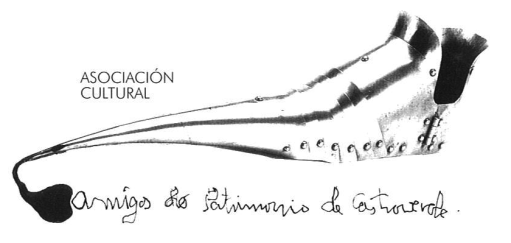 ASOCIACIÓN
CULTURAL
amigos do Patrimonio de Castroverde.